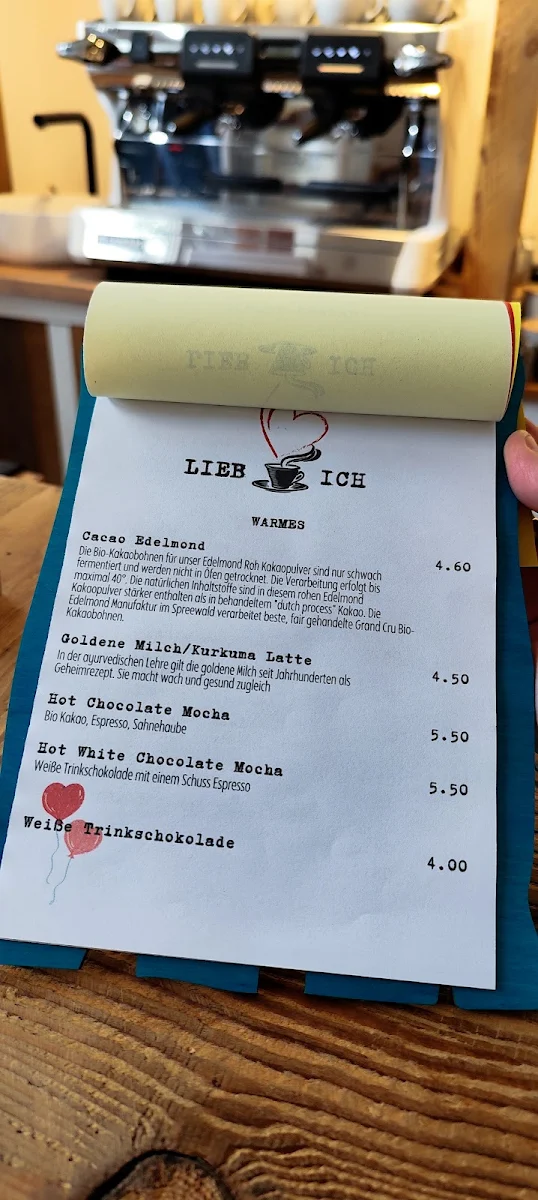 LIEB ICH
LIEB ICH
WARMES
Cacao Edelmond
Die Bio-Kakaobohnen für unser Edelmond Roh Kakaopulver sind nur schwach
fermentiert und werden nicht in Öfen getrocknet. Die Verarbeitung erfolgt bis
maximal 40°. Die natürlichen Inhaltsstoffe sind in diesem rohen Edelmond
Kakaopulver stärker enthalten als in behandeltem "dutch process" Kakao. Die
Edelmond Manufaktur im Spreewald verarbeitet beste, fair gehandelte Grand Cru Bio-
Kakaobohnen.
4.60
Goldene Milch/Kurkuma Latte
In der ayurvedischen Lehre gilt die goldene Milch seit Jahrhunderten als
Geheimrezept. Sie macht wach und gesund zugleich
4.50
Hot Chocolate Mocha
Bio Kakao, Espresso, Sahnehaube
5.50
Hot White Chocolate Mocha
Weiße Trinkschokolade mit einem Schuss Espresso
5.50
Weiße Trinkschokolade
4.00